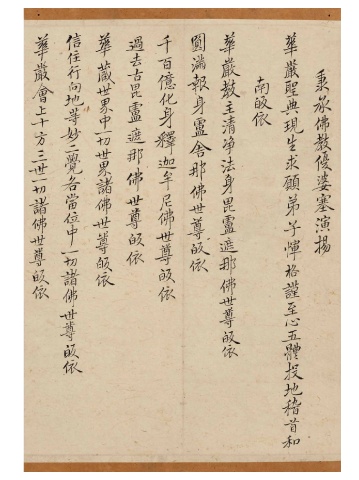 秉承佛教優婆塞演揚
華嚴聖典現生求願弟子惲格謹至心五體投地稽首和
南皈依
華嚴教主清淨法身毘盧遮那佛世尊皈依
圓滿報身盧舍那佛世尊皈依
千百億化身釋迦牟尼佛世尊皈依
過去古毘盧遮那佛世尊皈依
華藏世界中一切世界諸佛世尊皈依
信住行向地等妙二覺各當位中一切諸佛世尊皈依
華嚴會上十方三世一切諸佛世尊皈依